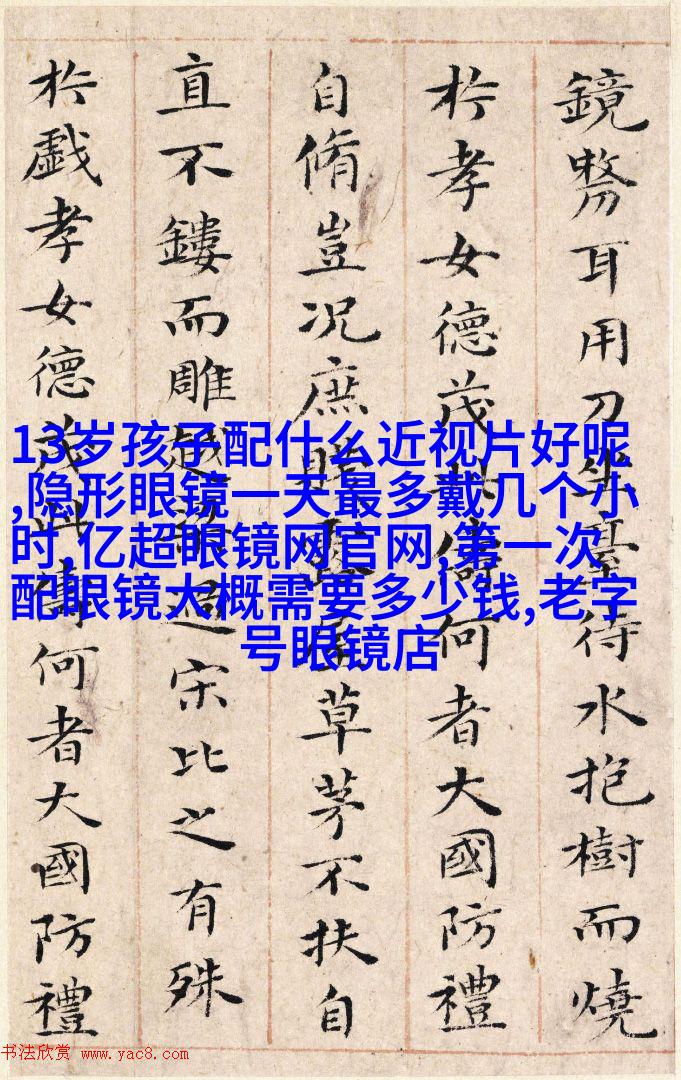 鏡剺耳用刀坐臺待水抱樹而燒
於孝女德茂此儔何者大國防禮
自脩豈況庶賤草茅不扶自
直不鏤而雕越過宋比之有殊
於戲孝女德茂此儔何者大國防禮
13岁孩子配什么近视片好呢
,隐形眼镜一天最多戴几个小
时,亿超眼镜网官网,第一次
配眼镜大概需要多少钱,老字
号眼镜店
书法欣赏 www.yac8.com